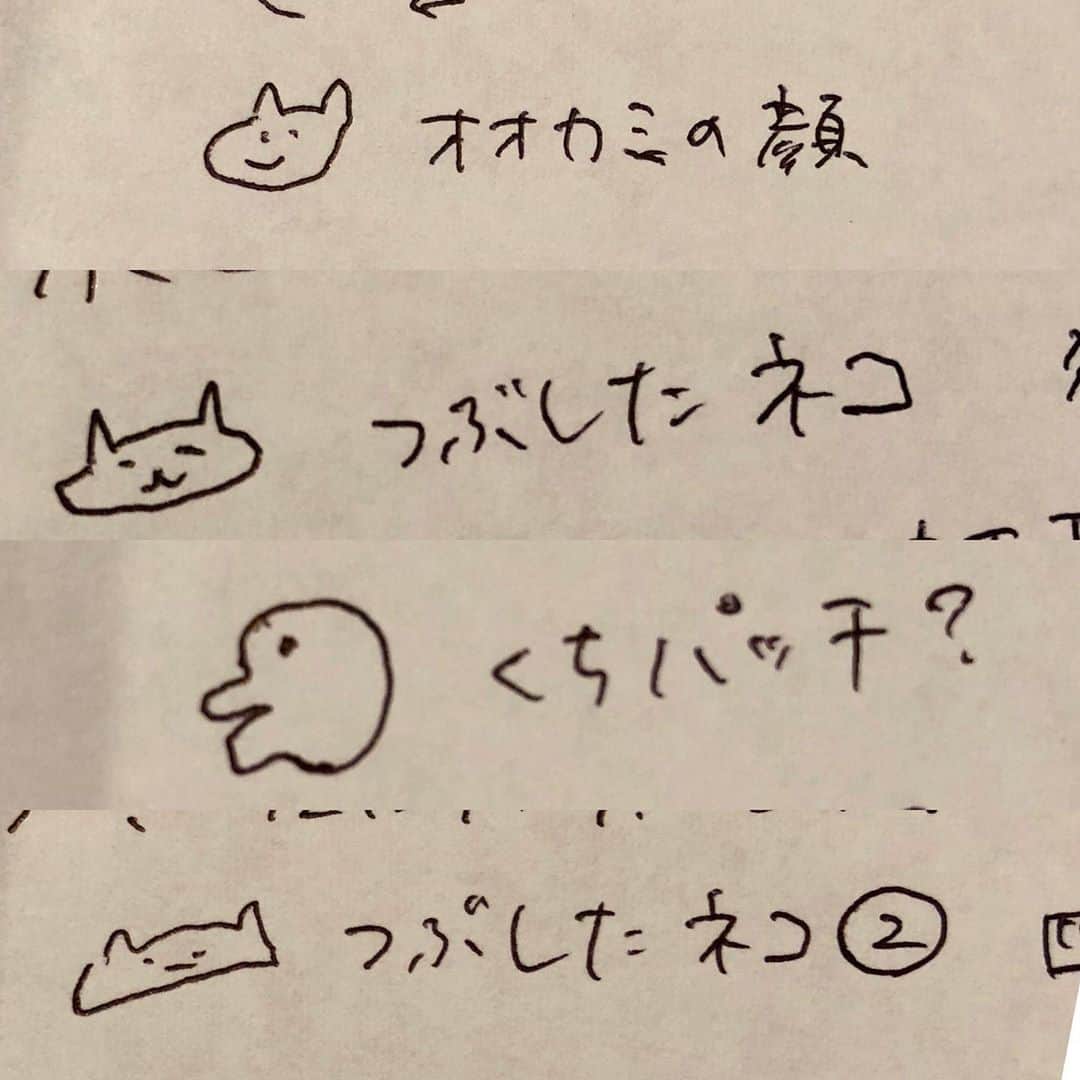 オオカミの顔
つぶした ネコ
くちパッチ?
つぶした ネコ②